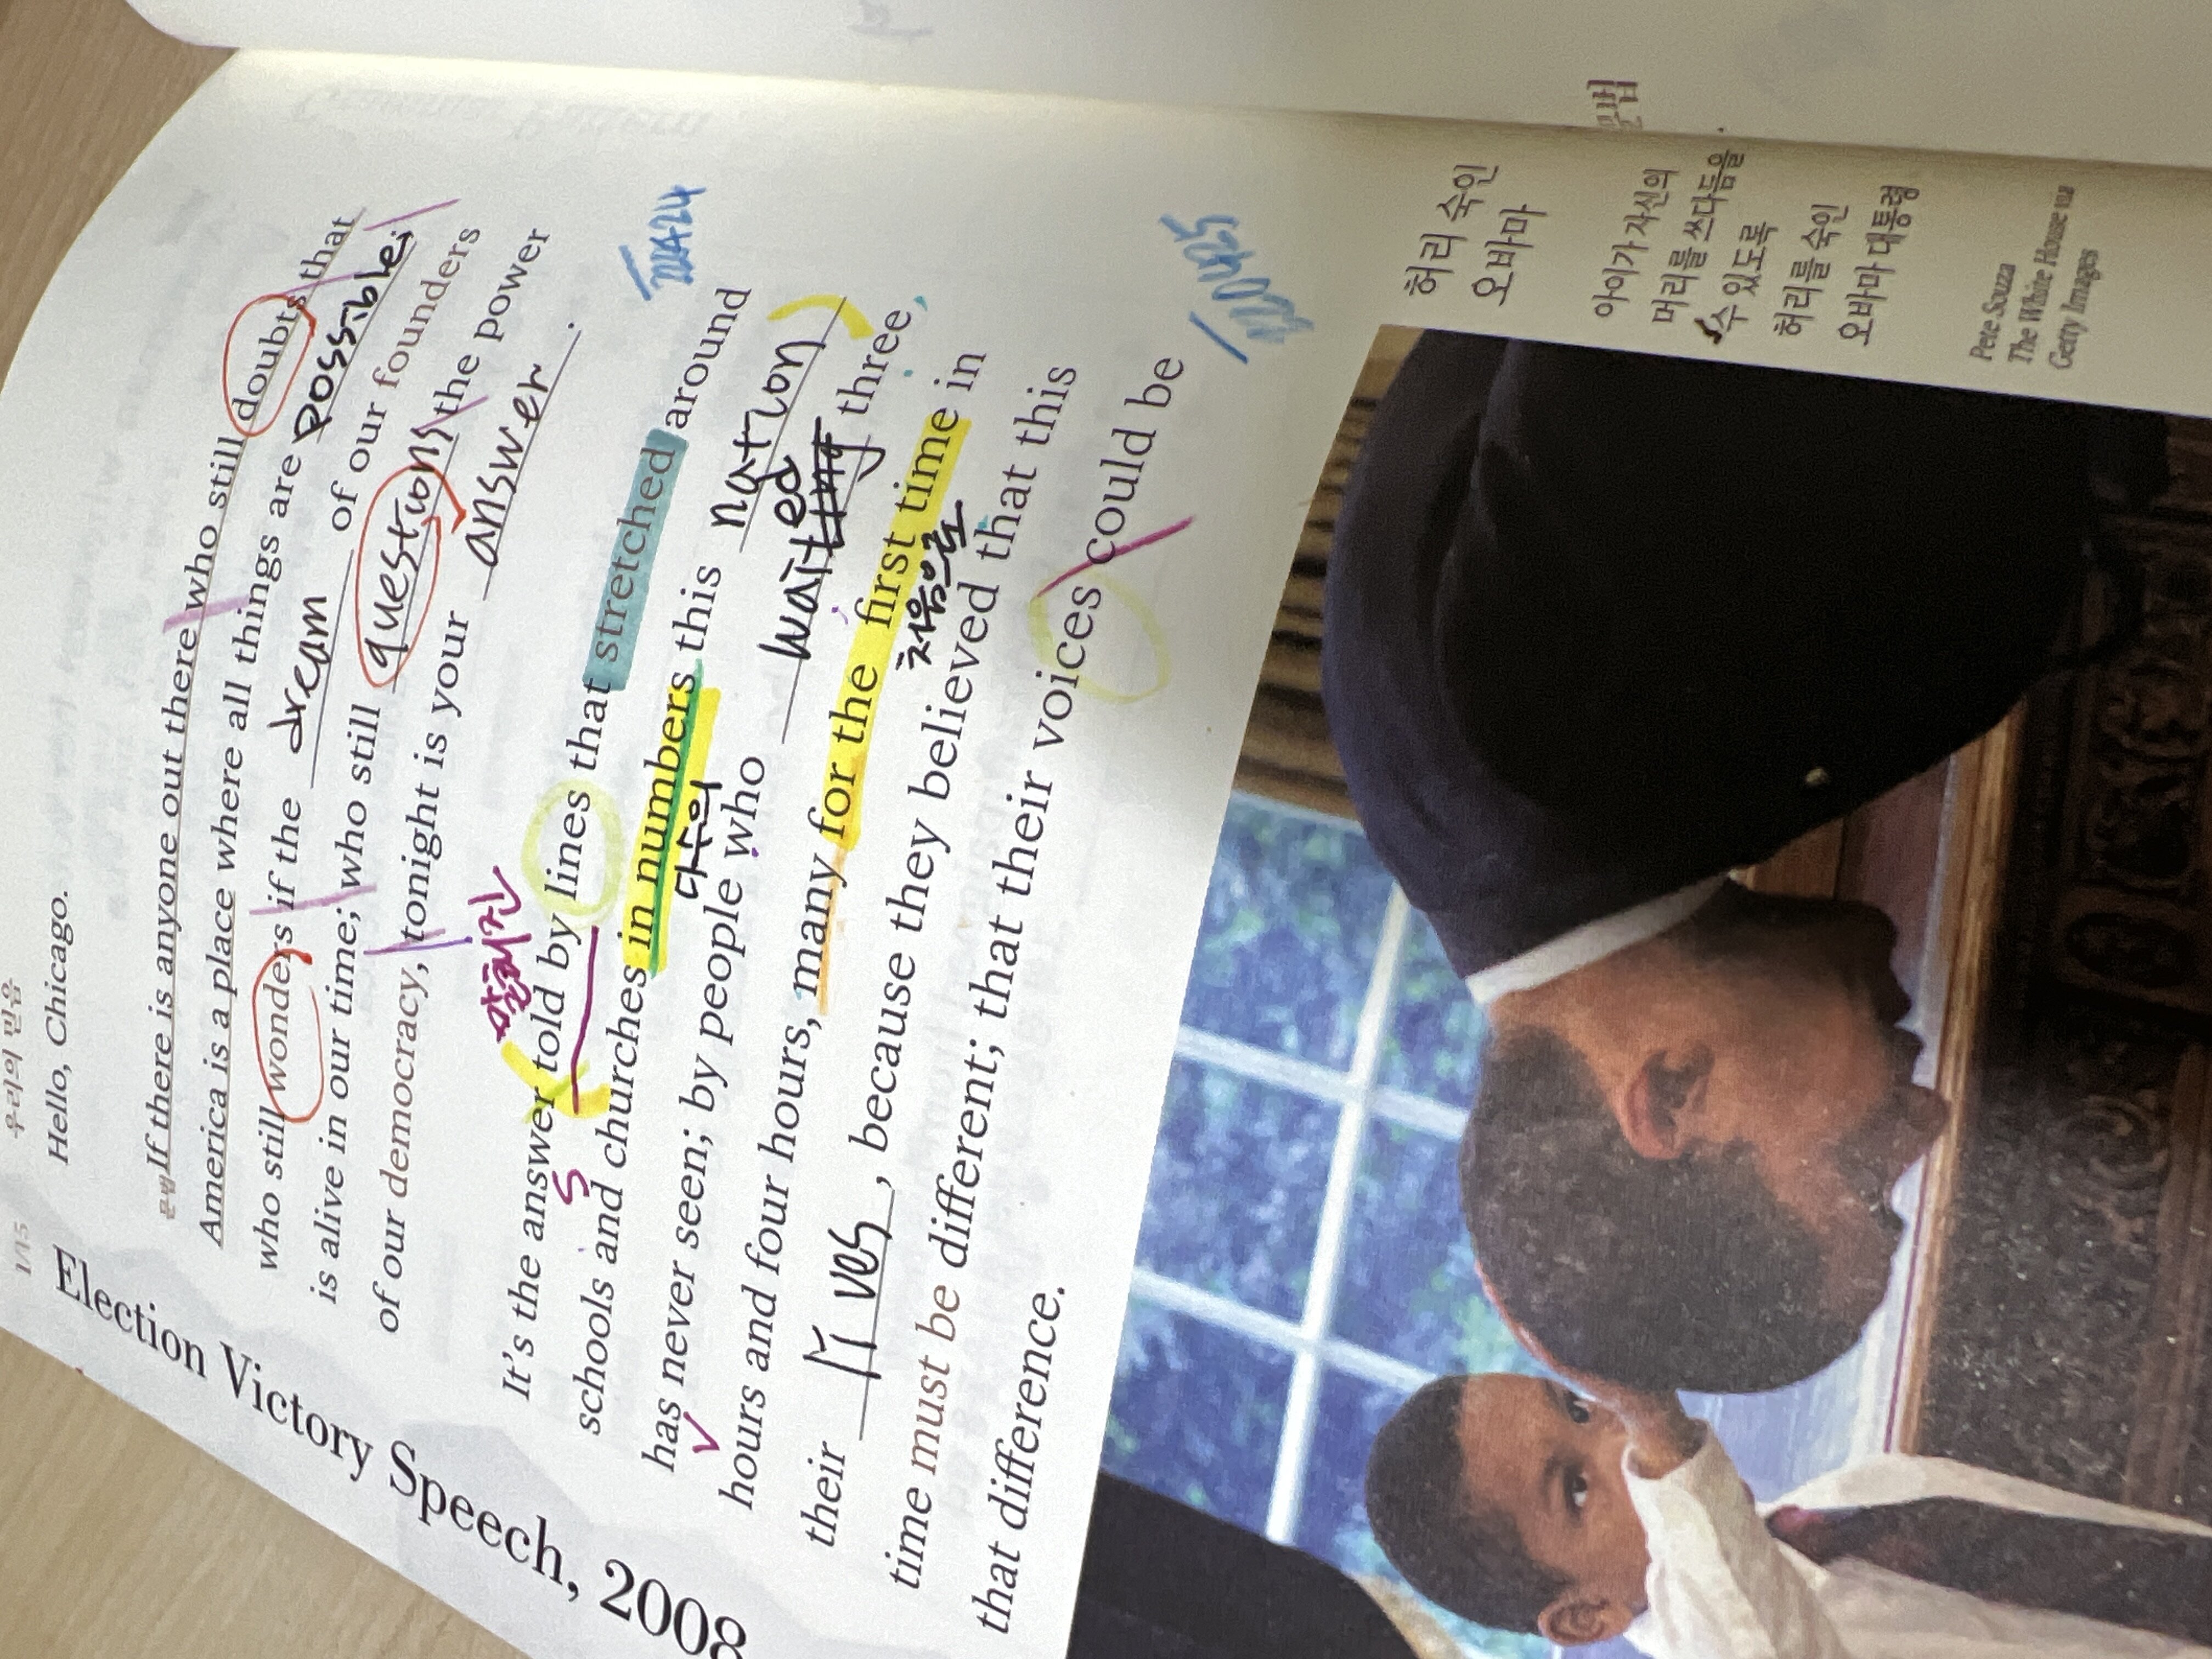 1/15
우리의 믿음
Election Victory Speech, 2008
Hello, Chicago.
문법 If there is anyone out there who still doubts that
America is a place where all things are possible;
who still wonders if the dream of our founders
is alive in our time; who still questions the power
of our democracy, tonight is your answer.
말해진
It's the answer told by lines that stretched around
S
schools and churches in numbers this nation
다수의
has never seen; by people who waited three
hours and four hours, many for the first time in
처음으로
their lives, because they believed that this
time must be different; that their voices could be
that difference.
허리 숙인
오바마
아이가 자신의
머리를 쓰다듬을
수 있도록
허리를 숙인
오바마 대통령
Pete Souza
The White House via
Getty Images
문법